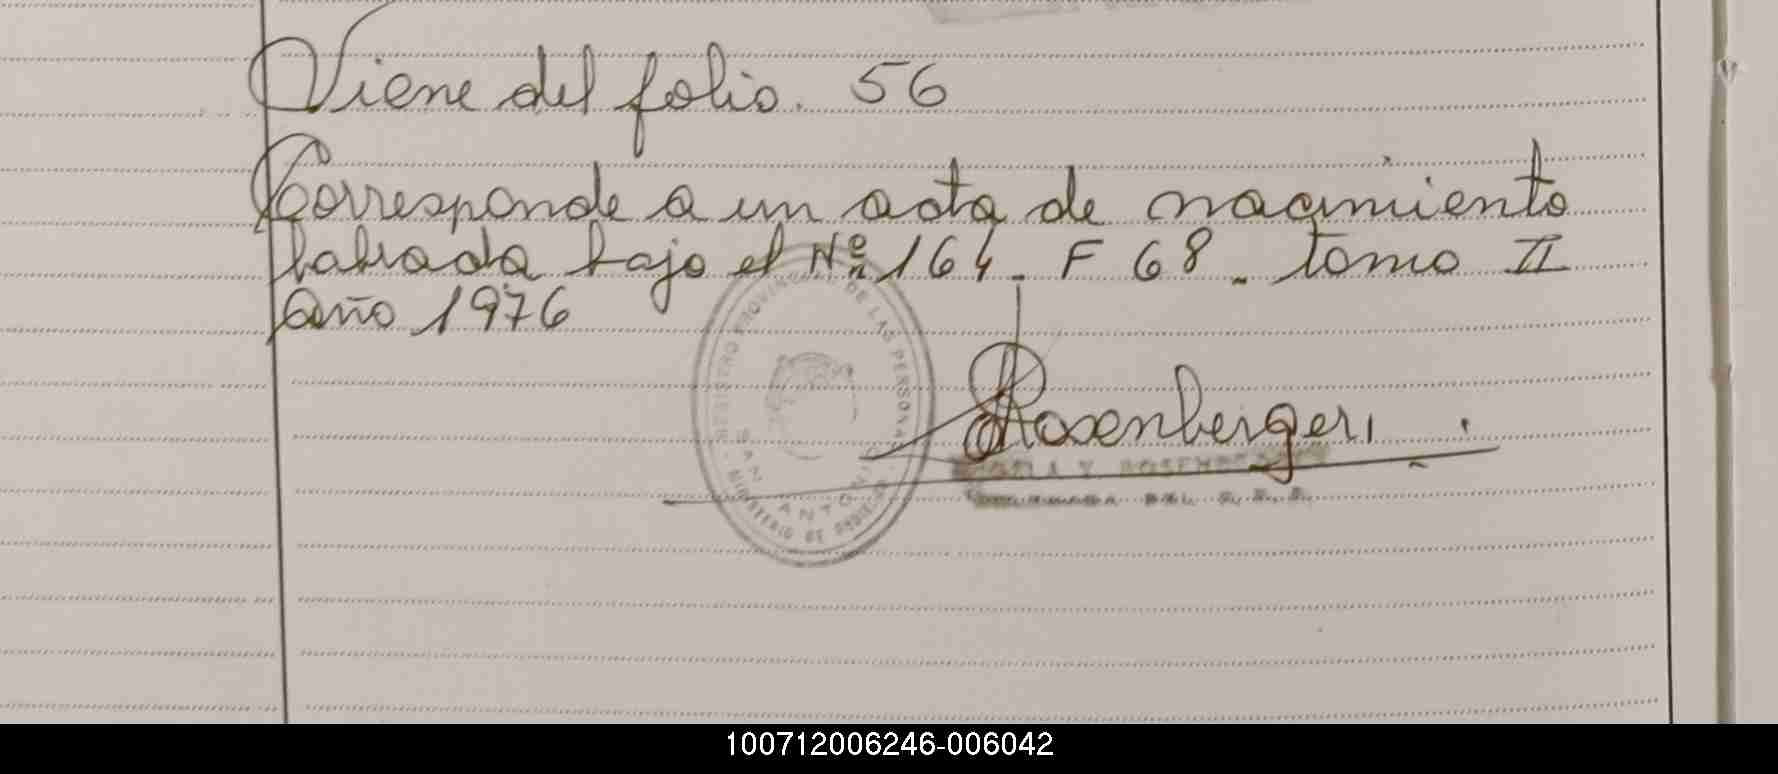 Viene del folio. 56
Corresponde a un acta de nacimiento
labrada bajo el Nº 164. F 68. tomo II
año 1976
REGISTRO PROVINCIAL DE LAS PERSONAS
SAN ANTONIO
MINISTERIO DE GOBIERNO
Rosenberger
100712006246-006042